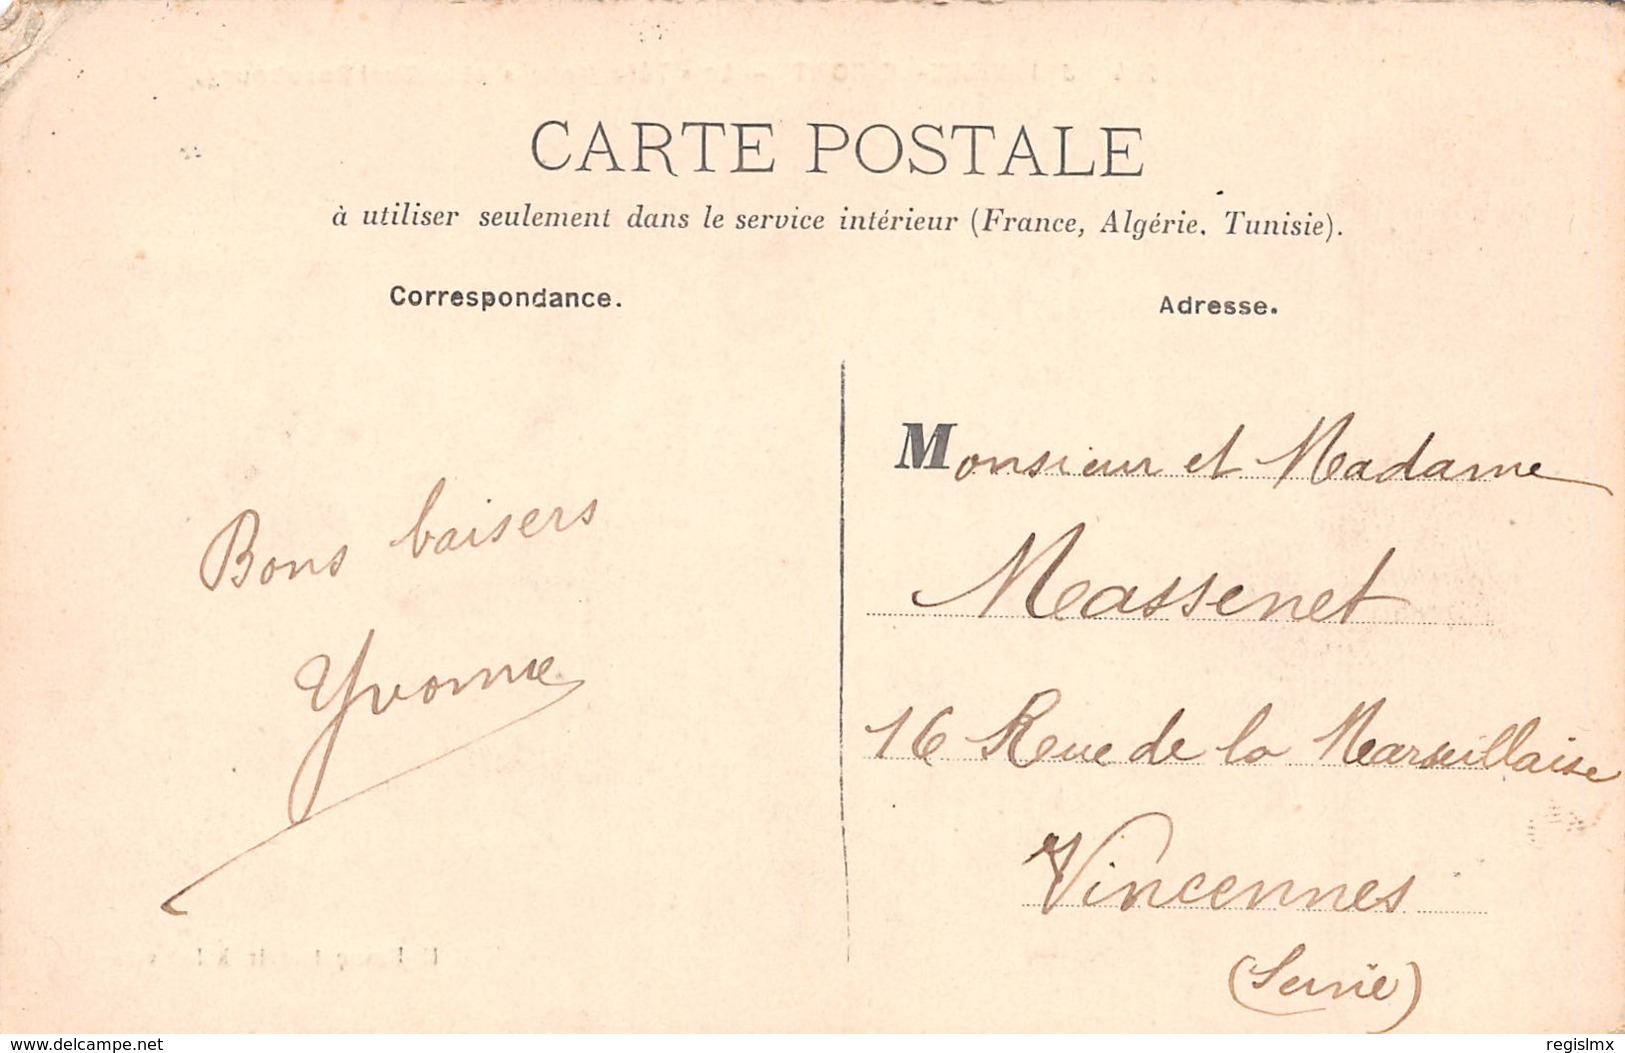 CARTE POSTALE
à utiliser seulement dans le service intérieur (France, Algérie, Tunisie).
Correspondance.
Adresse.
Bons baisers
Yvonne
Monsieur et Madame
Massenet
16 Rue de la Marseillaise
Vincennes
(Seine)
www.delcampe.net
regislmx